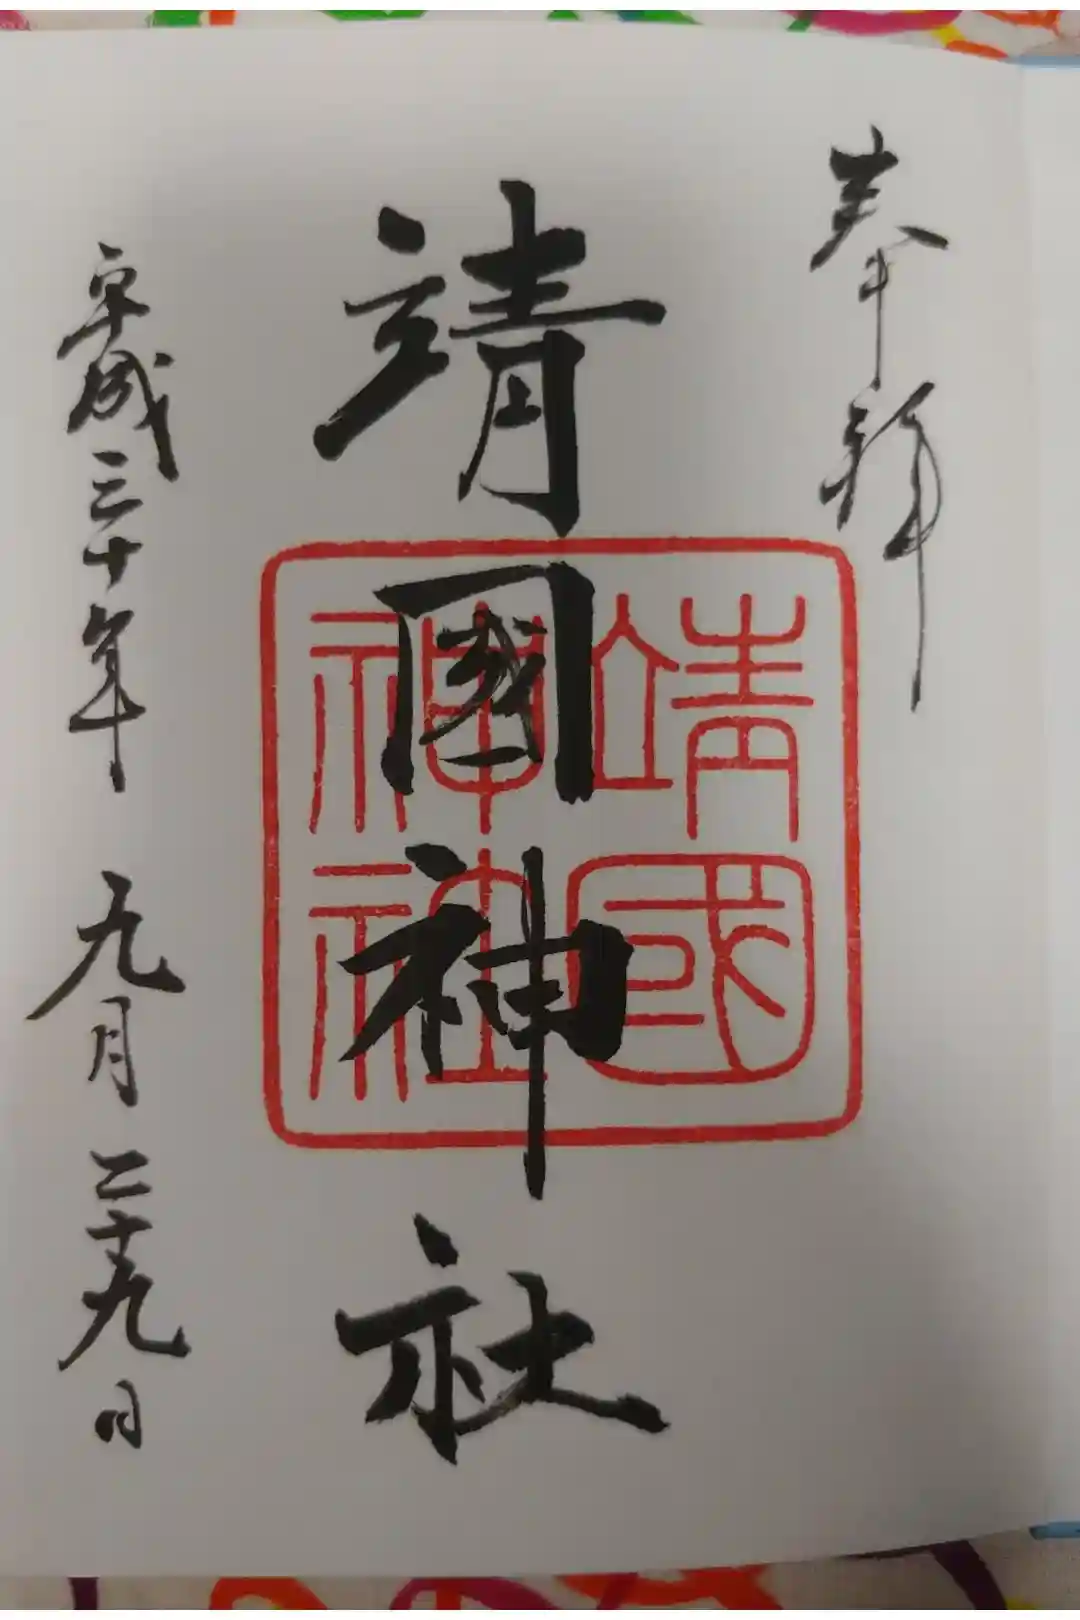 奉拝
靖國神社
靖國
神社
平成三十年 九月二十九日